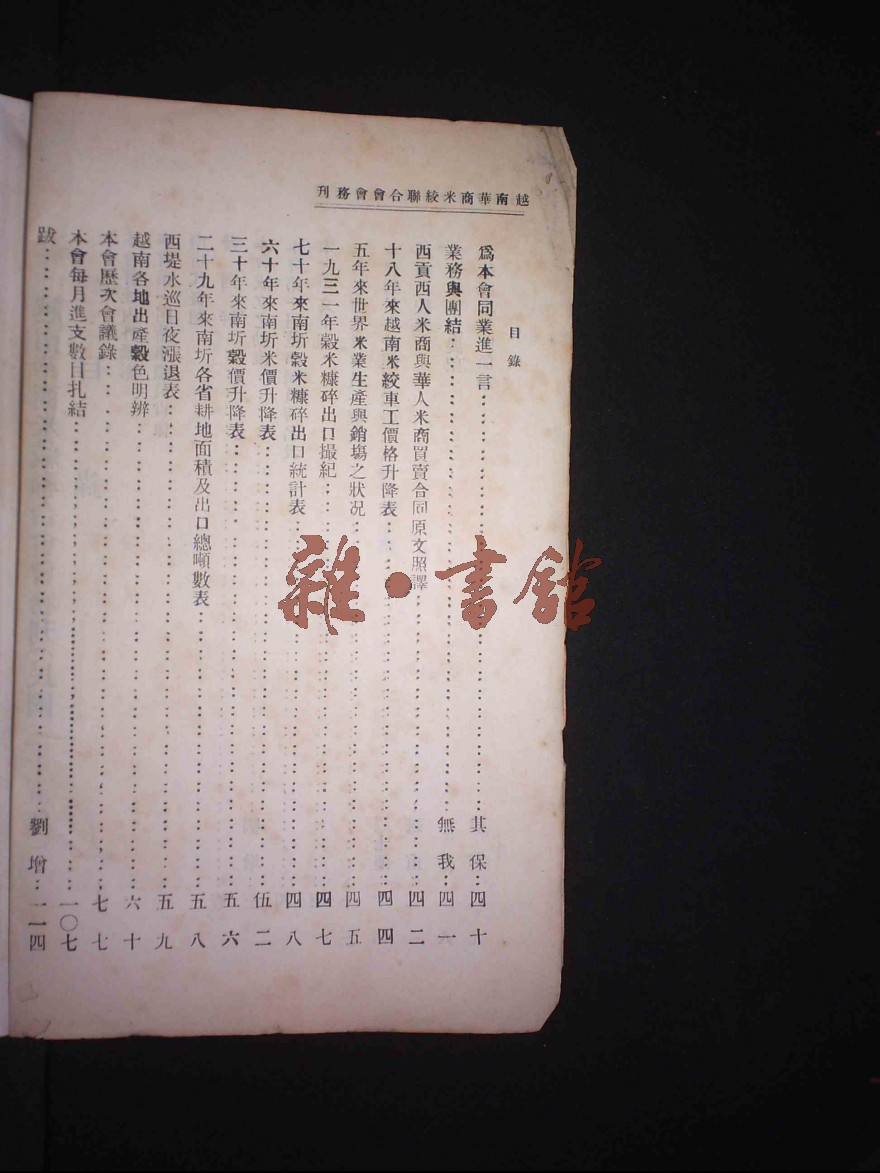 越南華商米絞聯合會會務刊
目錄
爲本會同業進一言 其保 四十
業務與團結 無我 四一
西貢西人米商與華人米商買賣合同原文照譯 四二
十八年來越南米絞車工價格升降表 四四
五年來世界米業生產與銷塲之狀况 四五
一九三一年穀米糠碎出口撮紀 四七
七十年來南圻穀米糠碎出口統計表 四八
六十年來南圻米價升降表 伍二
三十年來南圻穀價升降表 五六
二十九年來南圻各省耕地面積及出口總噸數表 五八
西堤水巡日夜漲退表 五九
越南各地出產穀色明辨 六十
本會歷次會議錄 七七
本會每月進支數目扎結 一〇七
跋 劉增 一一四
雜·書館